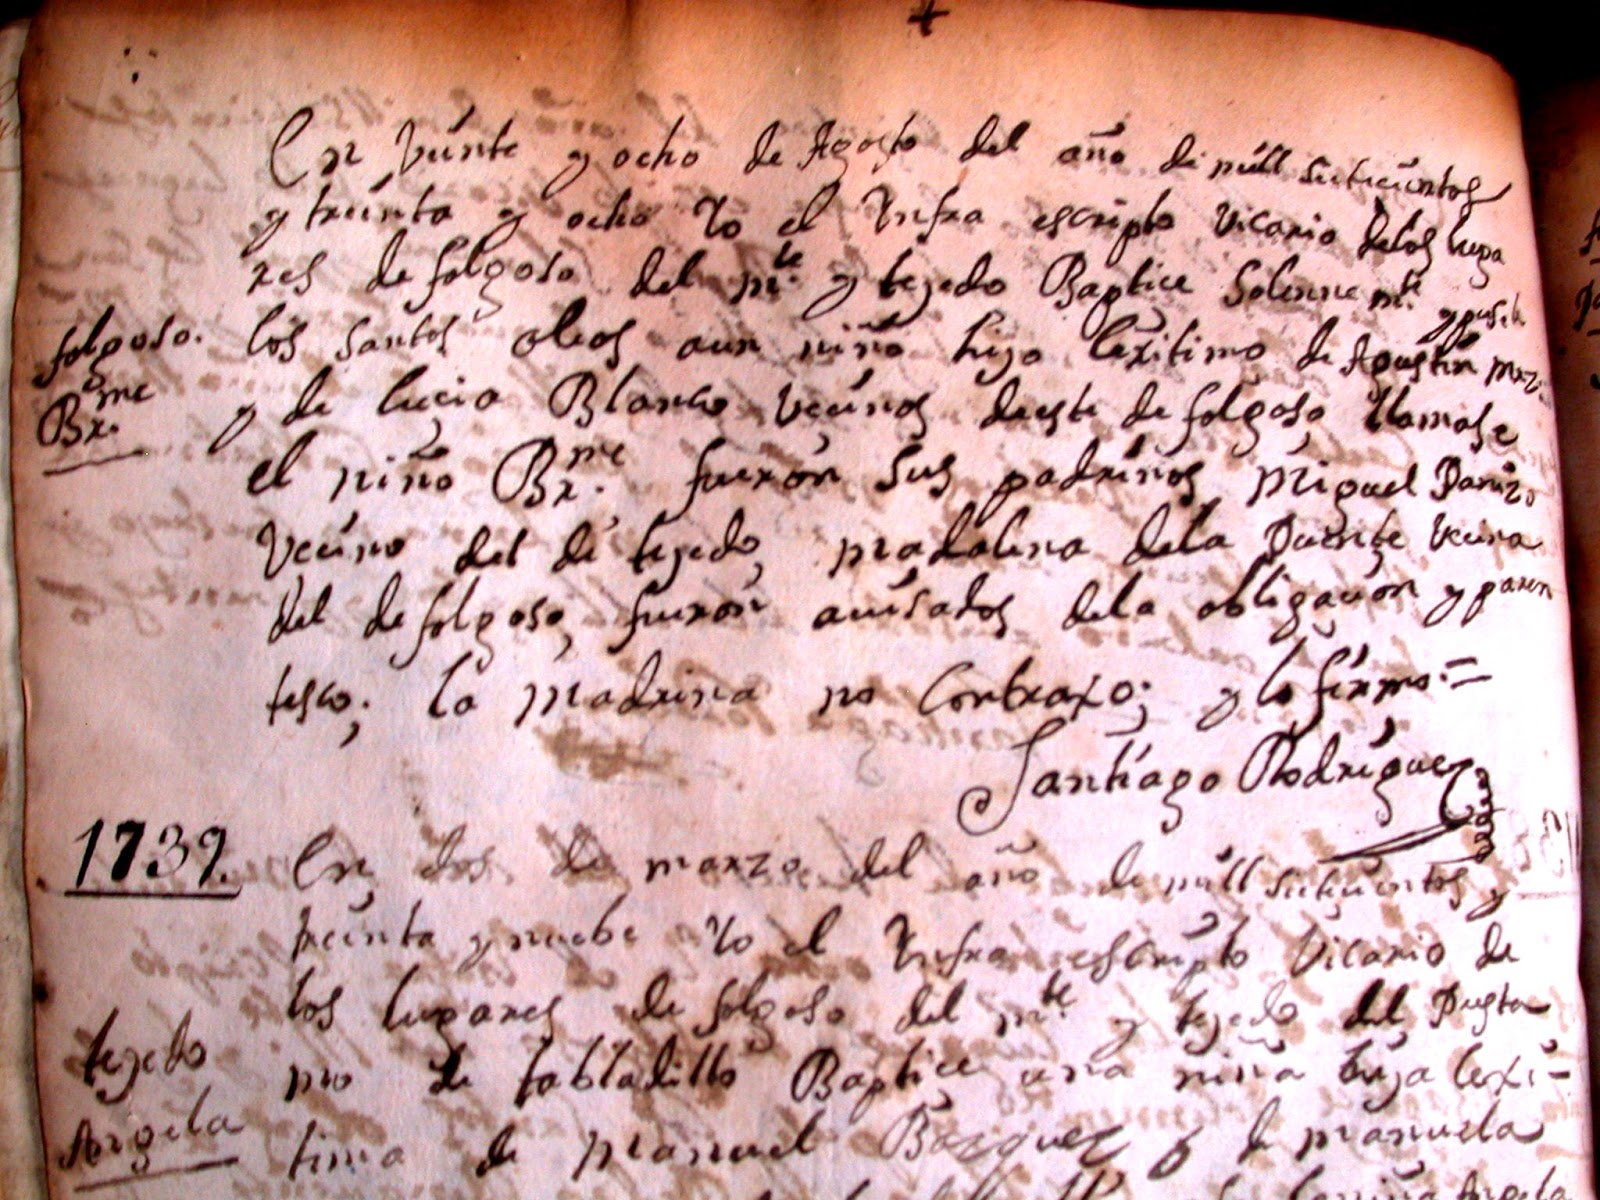 En Veinte y ocho de Agosto del año de mill setecientos
y treinta y ocho Yo el Infra escripto Vicario delos luga
res de folgoso del m.te y tejedo Baptice Solemne m.te y puse
los santos oleos aun niño hijo lexitimo de Agustin
folgoso.
Br.me
y de lucia Blanco Vecinos deeste de folgoso llamose
el niño Br.me fueron sus padrinos Miguel
Vecino del de tejedo, Madalena dela Puente Vecina
del de folgoso, fueron auisados dela obligacion y paren
tesco; la Madrina no Contraxo; y lo firmo =
Santiago Rodriguez
1739.
En dos de marzo del año de mill setecientos y
treinta y nuebe Yo el Infra escripto Vicario de
los lugares de folgoso del m.te y tejedo del Puesta
mo de tabladillo Baptice una niña hija lexi-
tejedo
Angela
tima de Manuel Bazquez y de Manuela